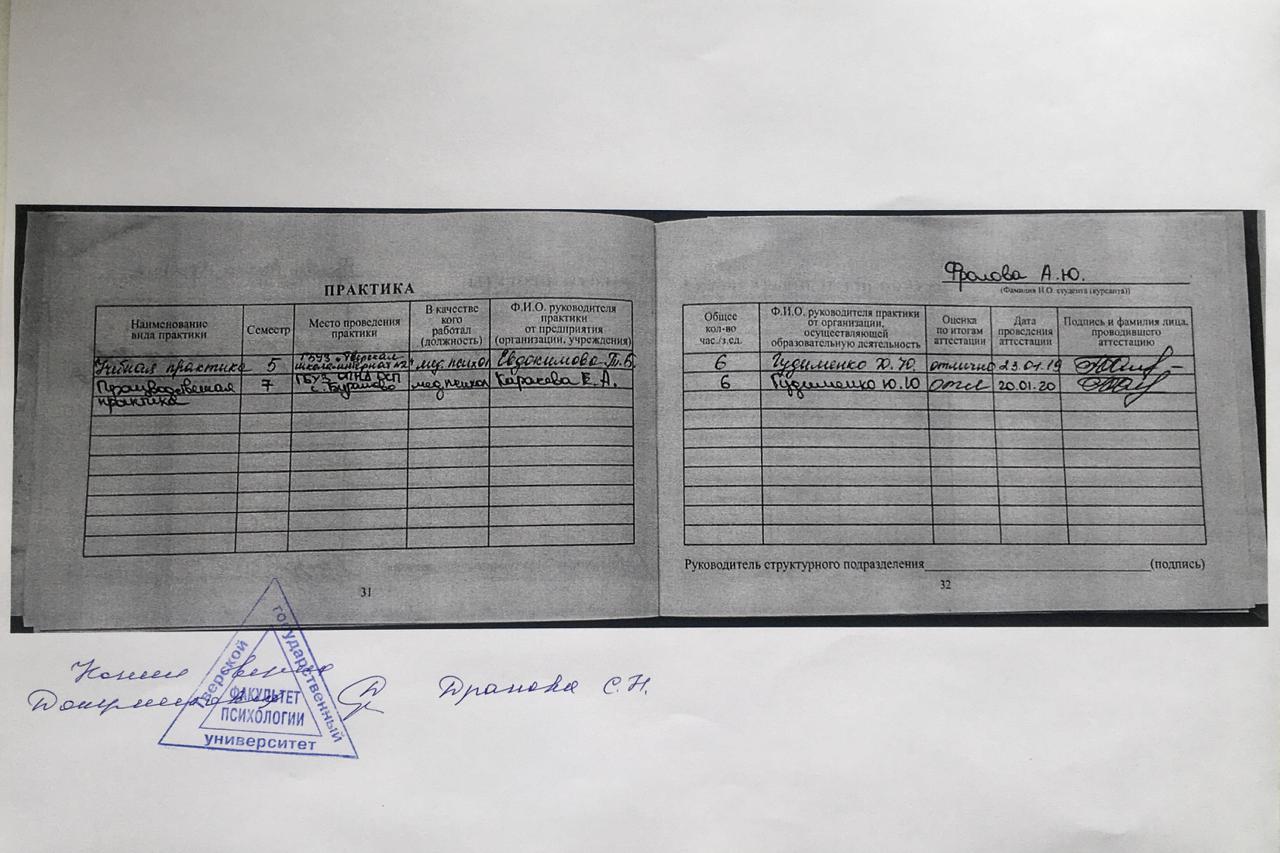 ПРАКТИКА
Наименование вида практики
Семестр
Место проведения практики
В качестве кого работал (должность)
Ф.И.О. руководителя практики от предприятия (организации, учреждения)
Учебная практика 5 ГБУЗ "Тверская школа-интернат №2" мед. психол Евдокимова Т.В.
Производственная практика 7 ГБУЗ ОПНД ОСП с. Бурашево мед психол Каракова Е.А.
31
Фролова А.Ю.
(Фамилия И.О. студента (курсанта))
Общее кол-во час./з.ед.
Ф.И.О. руководителя практики от организации, осуществляющей образовательную деятельность
Оценка по итогам аттестации
Дата проведения аттестации
Подпись и фамилия лица, проводившего аттестацию
6 Гудименко Ю.Ю. отлично
6 Гудименко Ю.Ю отл 20.01.20
Руководитель структурного подразделения (подпись)
32
Тверской государственный университет
ФАКУЛЬТЕТ
ПСИХОЛОГИИ
Копия верна
С.Н.